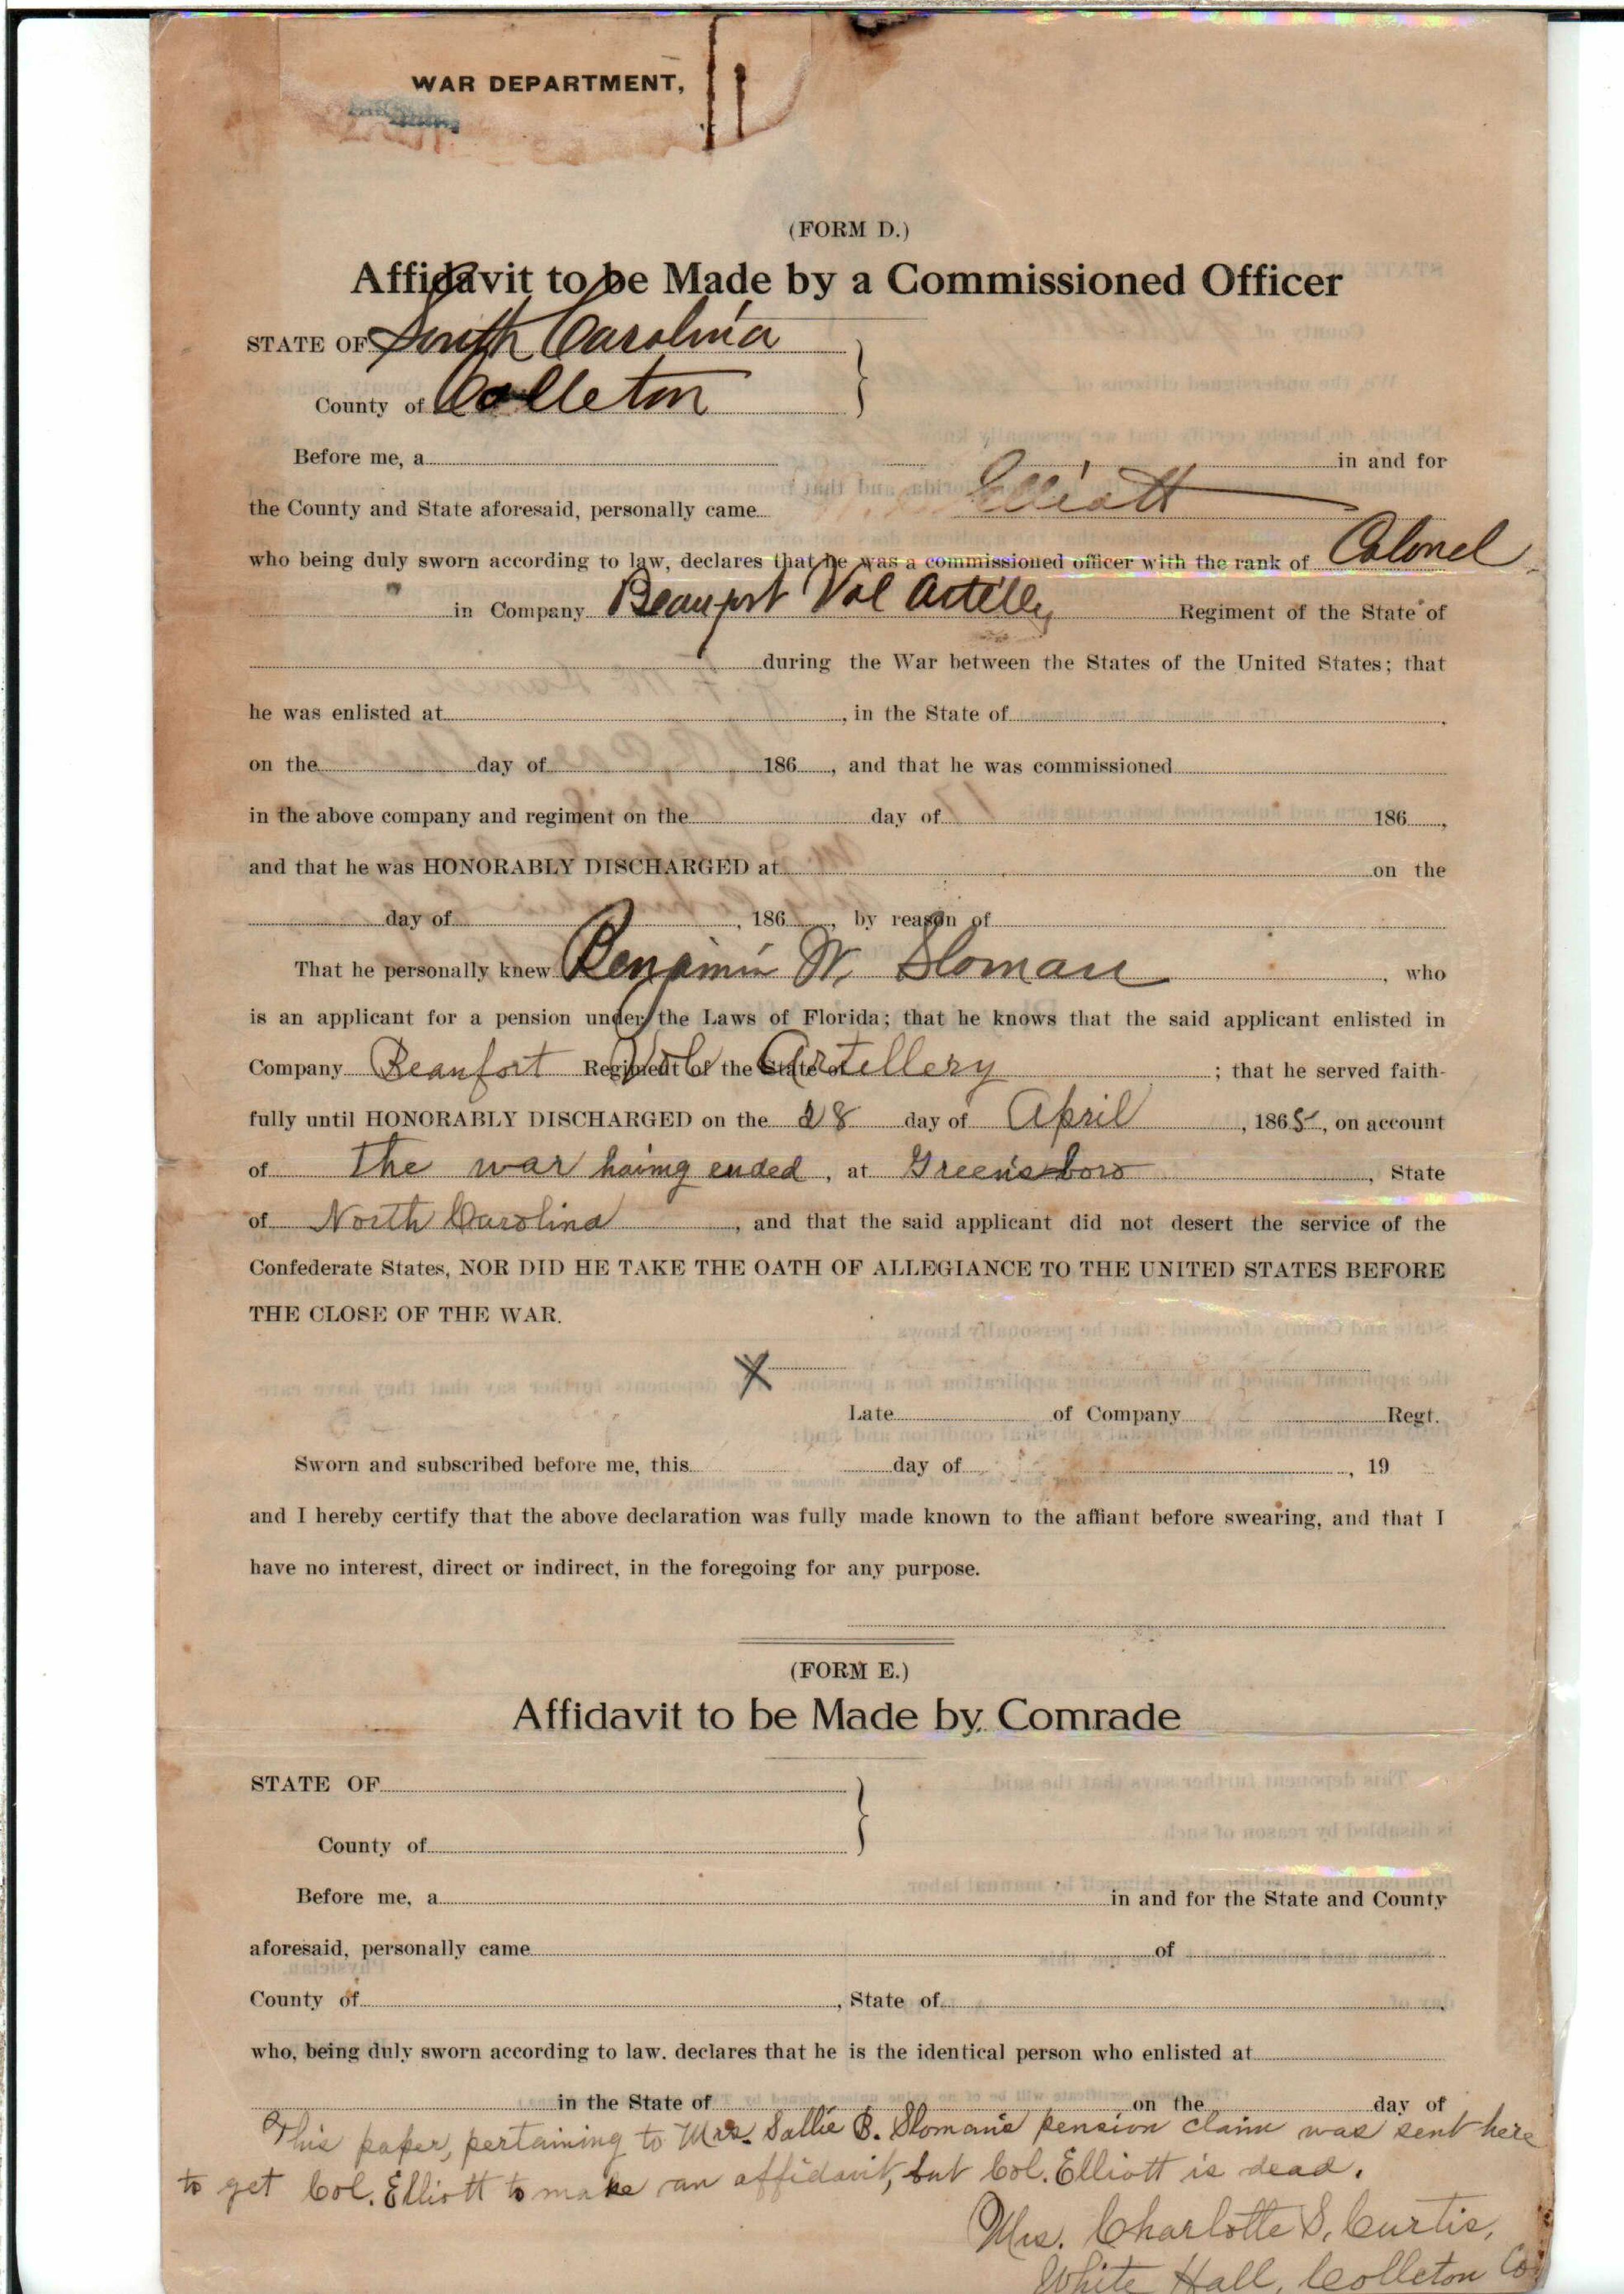 WAR DEPARTMENT,
(FORM D.)
Affidavit to be Made by a Commissioned Officer
STATE OF South Carolina
County of Colleton
Before me, a in and for
the County and State aforesaid, personally came Elliott
who being duly sworn according to law, declares that he was a commissioned officer with the rank of Colonel
in Company Beaufort Vol Artilley Regiment of the State of
during the War between the States of the United States; that
he was enlisted at , in the State of ,
on the day of 186 , and that he was commissioned
in the above company and regiment on the day of 186 ,
and that he was HONORABLY DISCHARGED at on the
day of , 186 , by reason of
That he personally knew Benjamin W. Sloman , who
is an applicant for a pension under the Laws of Florida; that he knows that the said applicant enlisted in
Company Beaufort Regiment of the State of Vol. Artellery ; that he served faith-
fully until HONORABLY DISCHARGED on the 28 day of April , 1865, on account
of the war haimg ended, at Greensboro , State
of North Carolina , and that the said applicant did not desert the service of the
Confederate States, NOR DID HE TAKE THE OATH OF ALLEGIANCE TO THE UNITED STATES BEFORE
THE CLOSE OF THE WAR.
X
Late of Company Regt.
Sworn and subscribed before me, this day of , 19
and I hereby certify that the above declaration was fully made known to the affiant before swearing, and that I
have no interest, direct or indirect, in the foregoing for any purpose.
(FORM E.)
Affidavit to be Made by Comrade
STATE OF
County of
Before me, a in and for the State and County
aforesaid, personally came of
County of , State of ,
who, being duly sworn according to law. declares that he is the identical person who enlisted at
in the State of on the day of
This paper, pertaining to Mrs. Sallie B. Sloman's pension claim was sent here
to get Col. Elliott to make an affidavit, but Col. Elliott is dead.
Mrs. Charlotte S. Curtis,
White Hall, Colleton Co